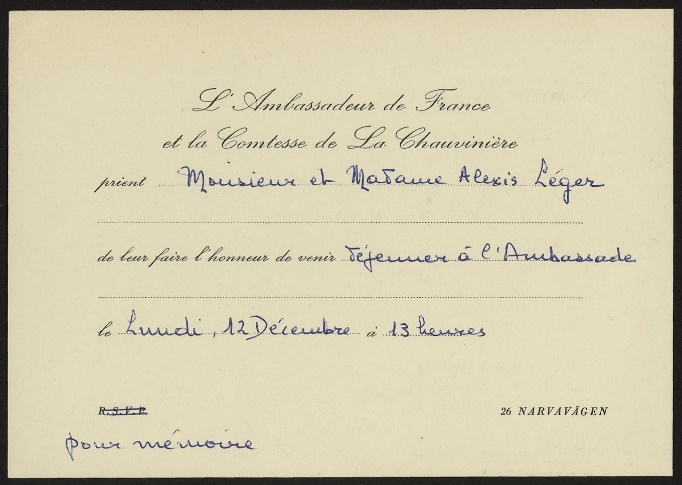 L'Ambassadeur de France
et la Comtesse de La Chauvinière
prient Monsieur et Madame Alexis Léger
de leur faire l'honneur de venir déjeuner à l'Ambassade
le Lundi, 12 Décembre à 13 heures
R.S.V.P. 26 NARVAVÄGEN
pour mémoire